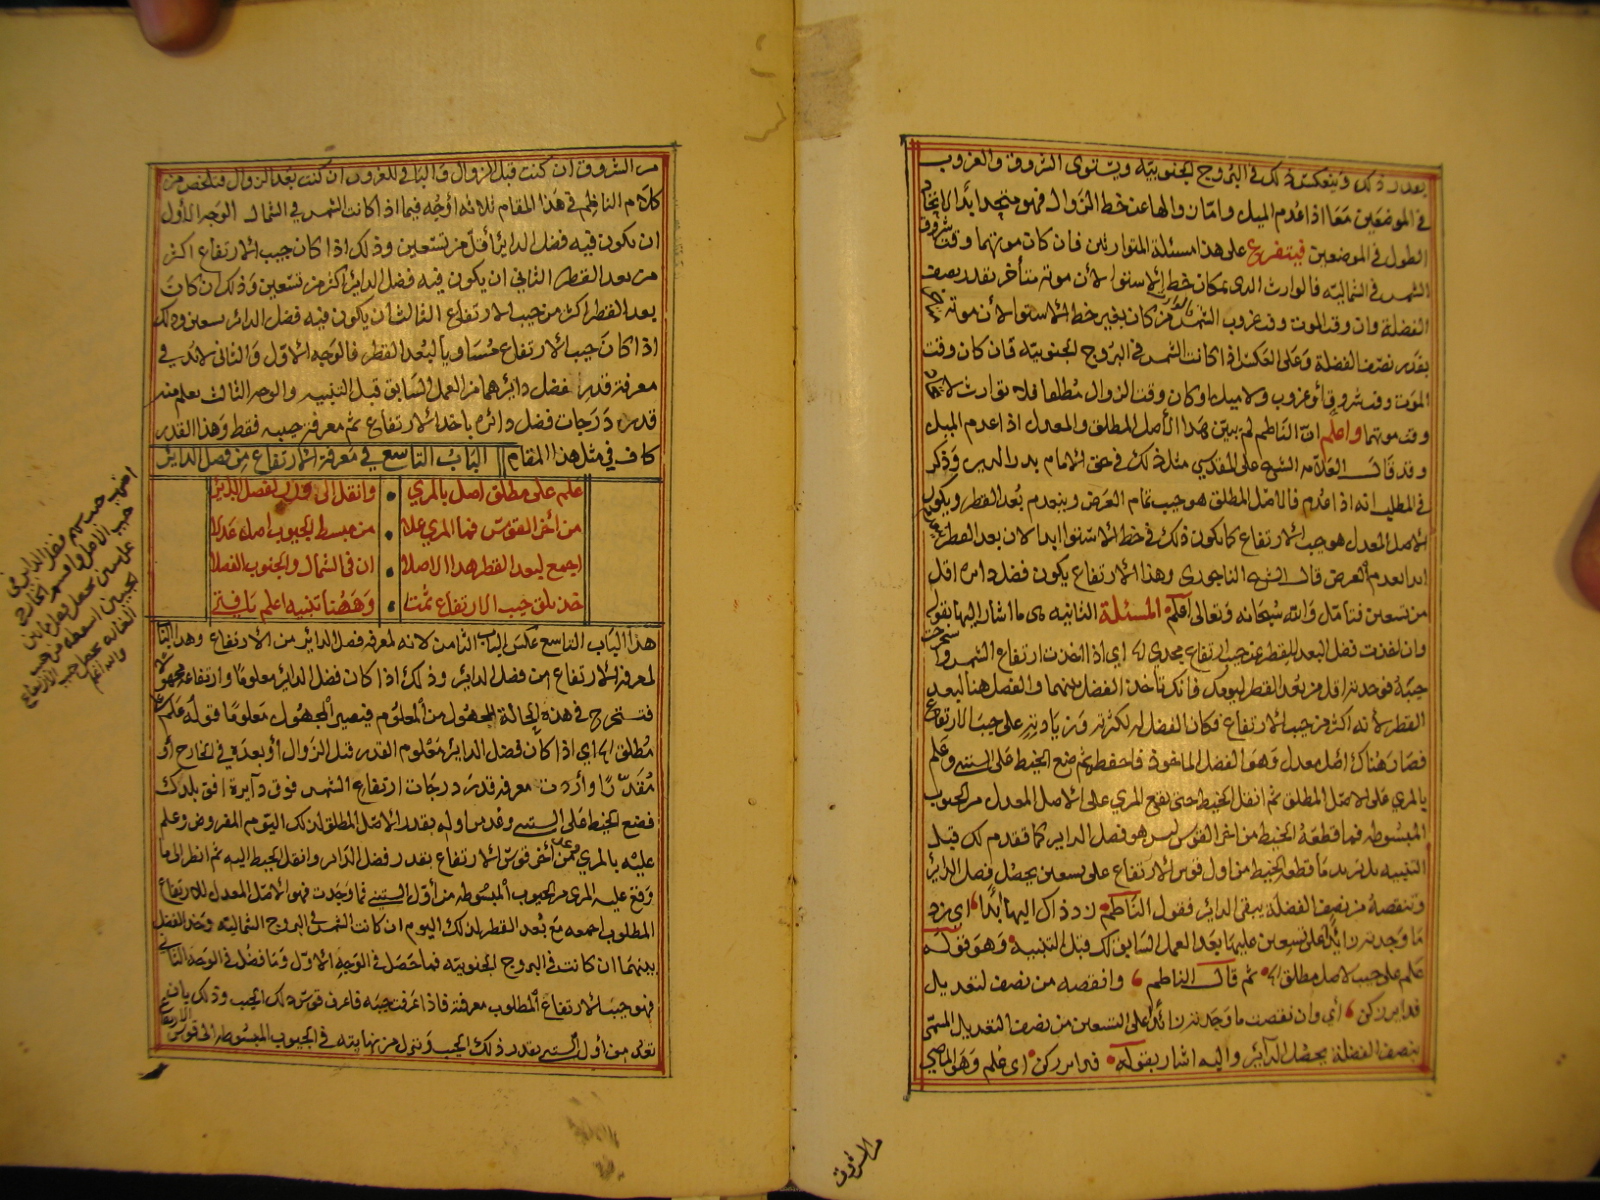 بعد ذلك وينعكس ذلك في البروج الجنوبية ويستوى الشروق والغروب
في الموضعين معا اذا عدم الميل واما زوالها عند خط الزوال فهو متحد ابدا لاتحاد
الطول في الموضعين فيتفرع على هذا مسئلة المتوارثين فان كان موتهما وقت شروق
الشمس في الشمالية فالوارث الذى بمكان خط الاستوا لأن موته متأخر بقدر نصف
الفضلة وان وقت الموت وقت غروب الشمس كان بغير خط الاستوا لأن موته
بقدر نصف الفضلة وعلى العكس اذا كانت الشمس في البروج الجنوبية فان كان وقت
الموت وقت شروق أو غروب ولا ميل او كان وقت الزوال مطلقا فلا توارث لاتحاد
وقت موتهما واعلم ان الناظم لم يبين هذا الأصل المطلق والمعدل اذا عدم الميل
وقد قال العلامه الشيخ على المقدسي مثل ذلك في حق الامام بدر الدين وذكر
في المطلب انه اذا عدم فالاصل المطلق هو جيب تمام العرض وينعدم بعد القطر ويكون
الاصل المعدل هو جيب الارتفاع كما يكون ذلك في خط الاستوا ابدا لان بعد القطر
ابدا لعدم العرض قال الشيخ الناجورى وهذا الارتفاع يكون فضل دايره اقل
من تسعين فتأمل والله سبحانه وتعالى اعلم المسئلة الثانيه هى ما اشار اليها بقوله
وان نفذت فضل البعد للقطر عن جيب ارتفاع مجدي اى اذا اخذت ارتفاع الشمس
جيبه فوجدته اقل من بعد القطر ليومك فانك تأخذ الفضل بينهما والفضل هنا لبعد
القطر لأنه اكثر من جيب الارتفاع فكان الفضل له لكثرته وزيادته على جيب الارتفاع
فصار هناك اصل معدل وهو الفضل الماخوذ فاحفظه ثم ضع الخيط على الستيني وعلم
بالمري على الاصل المطلق ثم انقل الخيط حتى يقع المري على الاصل المعدل من الجيوب
المبسوطه فما قطعه الخيط من اخر القوس ليس هو فضل الداير كما تقدم لك قبل
التنبيه بل تزيد ما قطعه الخيط من اول قوس الارتفاع على تسعين يحصل فضل الدائر
وتنقصه من نصف الفضلة يبقى الدائر فقول الناظم زد ذاك اليها ابدا اى زد
ما وجدته زائدا على تسعين عليها بعد العمل السابق لك قبل التنبيه وهو بقوله
علم على جيب لاصل مطلق ثم قال الناظم وانقصه من نصف لتعديل
فدايرزكن أي وان نقصت ما وجدته زائدا على التسعين من نصف التعديل المسمى
بنصف الفضلة يحصل الدآئر واليه اشار بقوله فدايرزكن اى علم وهو الماضي
من الشروق
من الشروق ان كنت قبل الزوال والباقي للغروب ان كنت بعد الزوال فتلخص من
كلام الناظم في هذا المقام ثلاثة أوجه فيما اذا كانت الشمس في الشمال الوجه الأول
ان يكون فيه فضل الداير أقل من تسعين وذلك اذا كان جيب الارتفاع اكثر
من بعد القطر الثاني ان يكون فيه فضل الداير أكثر من تسعين وذلك ان كان
بعد القطر اكثر من جيب الارتفاع الثالث ان يكون فيه فضل الدائر تسعين وذلك
اذا كان جيب الارتفاع مساويا لبعد القطر فالوجه الاول والثانى لابد في
معرفة قدر فضل دائرهما من العمل السابق قبل التنبيه والوجه الثالث يعلم منه
قدره درجات فضل دائره باخذ الارتفاع ثم معرفة جيبه فقط وهذا القدر
كاف في مثل هذا المقام الباب التاسع في معرفة الارتفاع من فضل الدائر
علم على مطلق اصل بالمري • وانقل الى قدر لفضل الدير
من اخر القوس فما المري علا • من مبسط الجيوب اصل عدلا
اجمع لبعد القطر هذا الاصلا • ان في الشمال والجنوب الفضلا
خذ يلق جيب الارتفاع ثمت • وههنا تنبيه اعلم يا فتى
هذا الباب التاسع عكس الباب الثامن لانه لمعرفة فضل الداير من الارتفاع وهذا الباب
لمعرفة الارتفاع من فضل الدائر وذلك اذا كان فضل الدائر معلوما وارتفاعه مجهولا
فتستخرج في هذه الحالة المجهول من المعلوم فيصير المجهول معلوما قوله علم على
مطلق اى اذا كان فضل الداير معلوم القدر قبل الزوال أو بعده في الخارج أو
مقدرا وأردت معرفة قدر درجات ارتفاع الشمس فوق دآيرة افق بلدك
فضع الخيط على الستيني وعد من اوله بقدر الاصل المطلق لذلك اليوم المفروض وعلم
عليه بالمري وعد من أخر قوس الارتفاع بقدر فضل الدائر وانقل الخيط اليه ثم انظر الى ما
وقع عليه المري من الجيوب المبسوطه من أول الستيني فما وجدت فهو الاصل المعدل للارتفاع
المطلوب اجمعه مع بعد القطر لذلك اليوم ان كانت الشمس في البروج الشمالية وخذ الفضل
بينهما ان كانت في البروج الجنوبية فما حصل في الوجه الاول وما فضل في الوجه الثاني
فهو جيب الارتفاع المطلوب معرفة فاذا عرفت جيبه فاعرف قوس ذلك الجيب وذلك بان
تعد من أول الستيني بقدر ذلك الجيب وتنزل من نهايته في الجيوب المبسوطه الى قوس الارتفاع